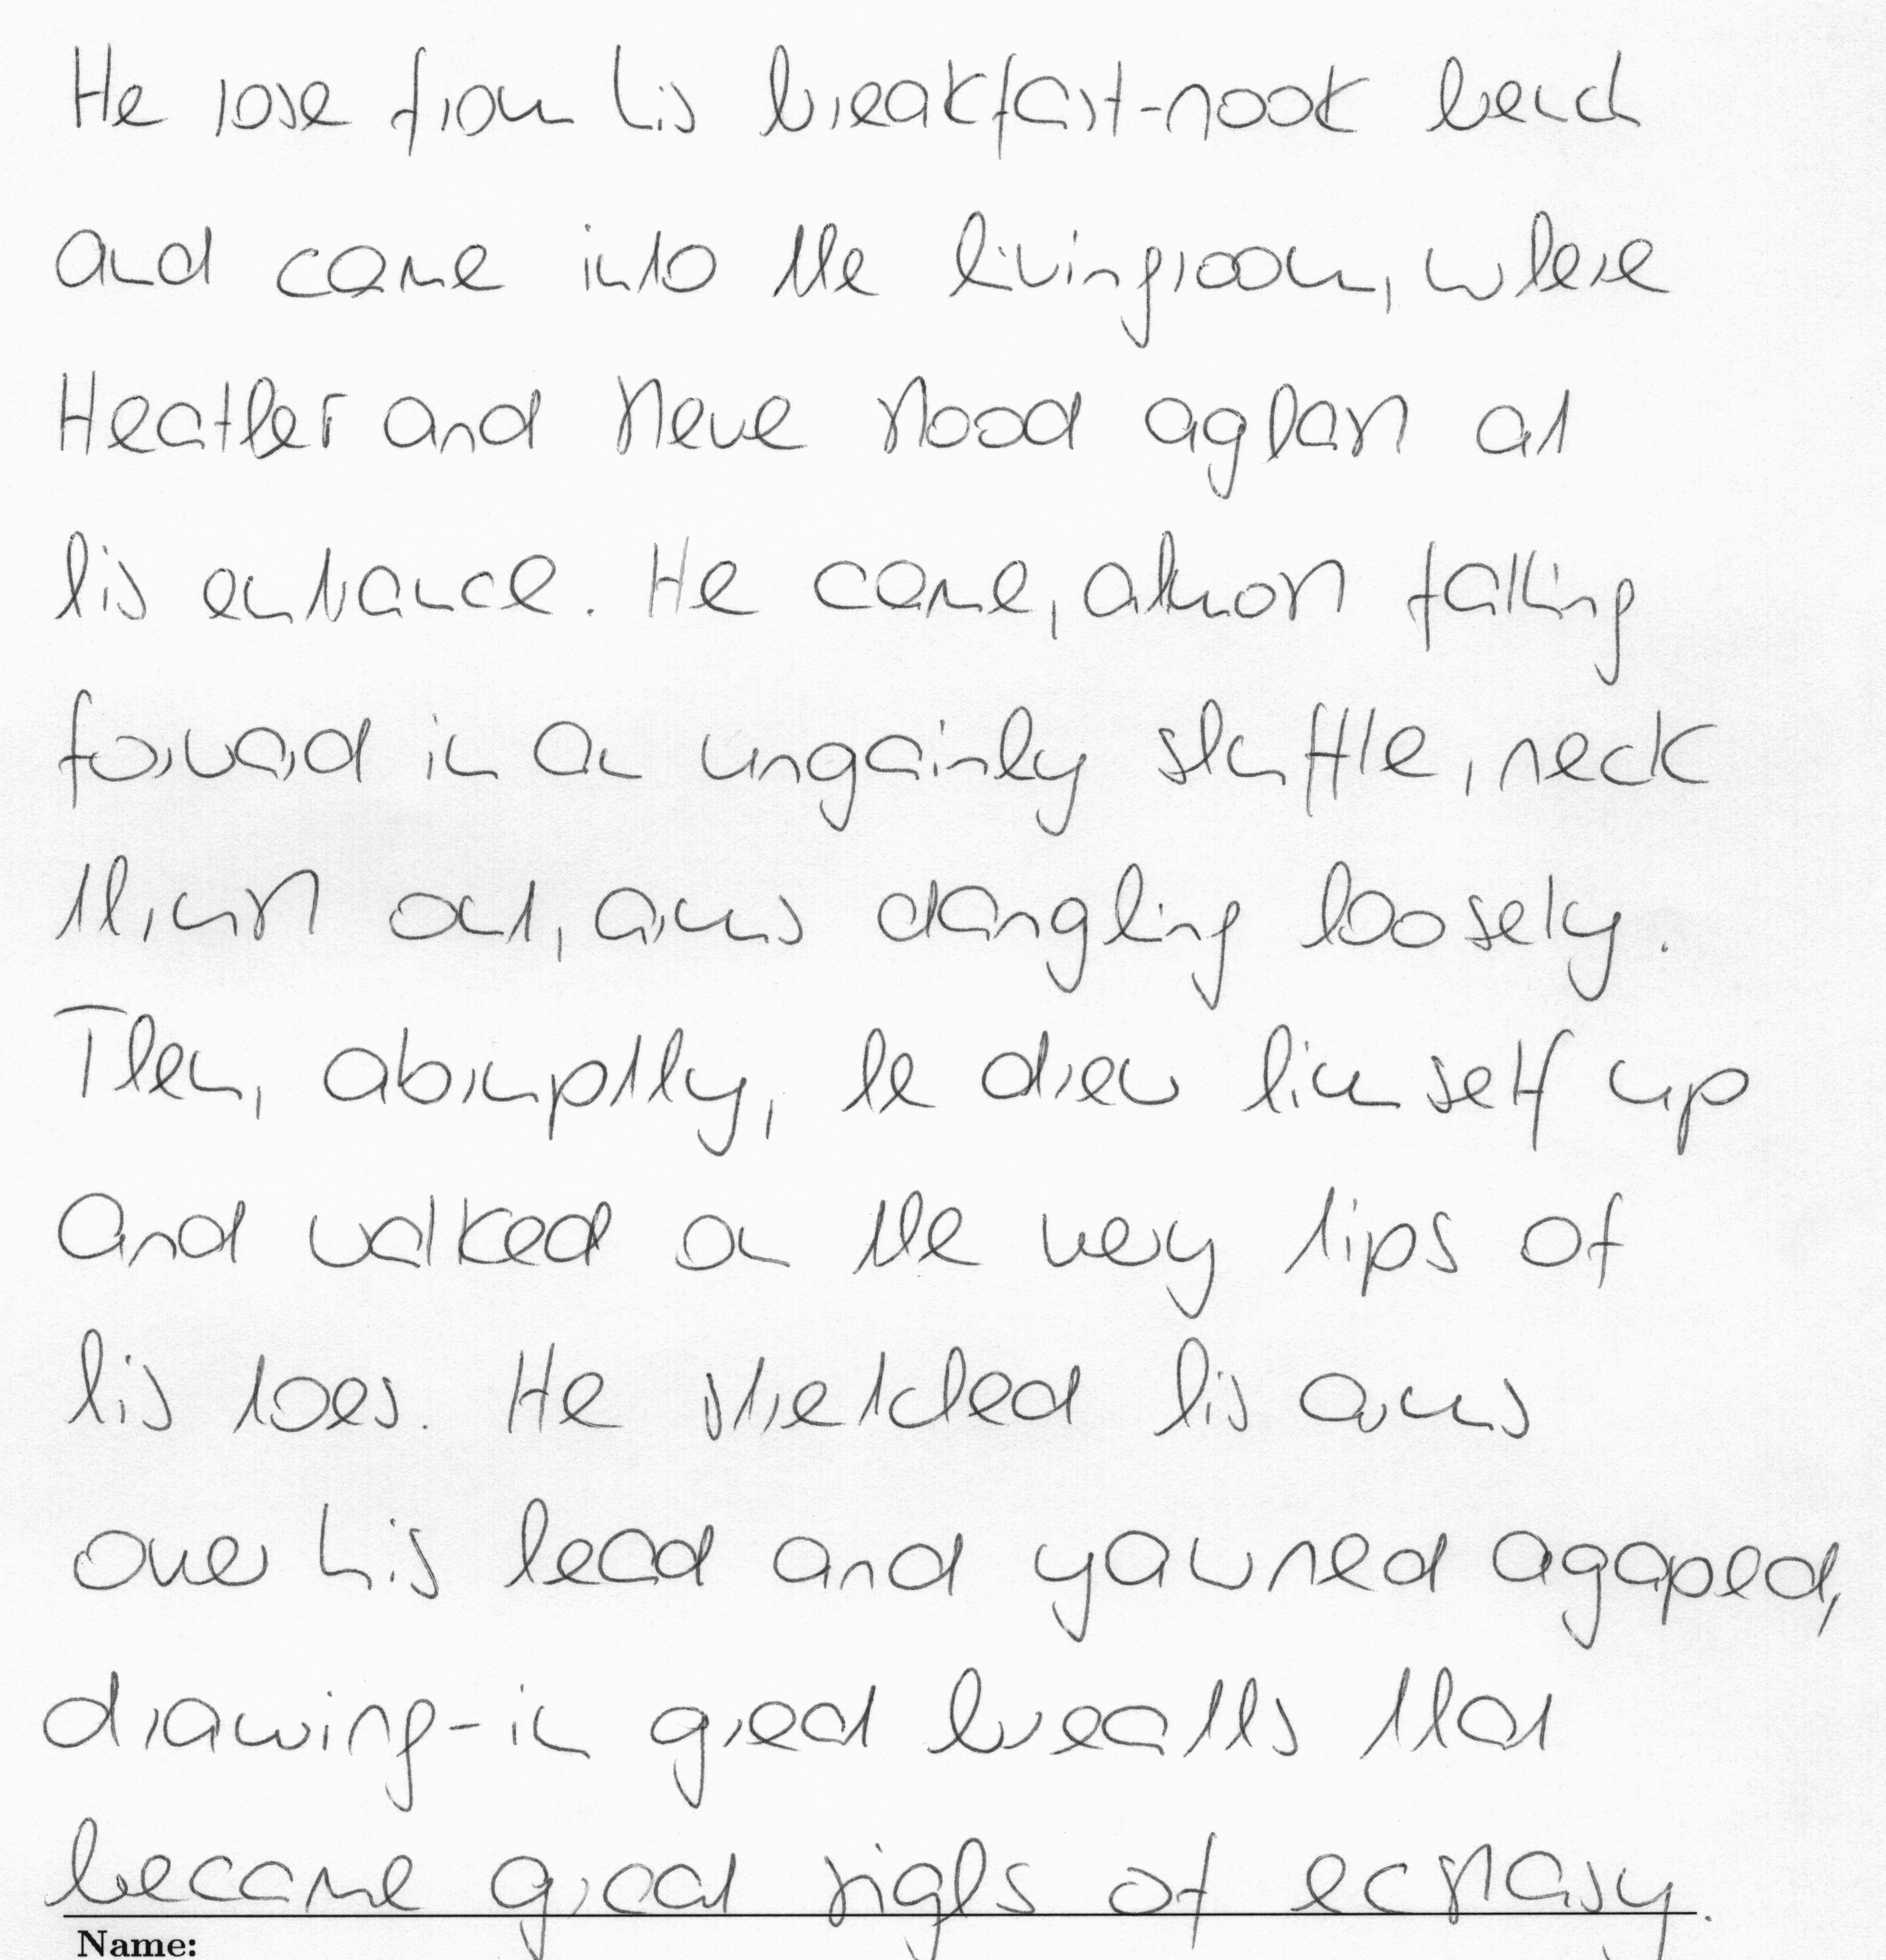 He rose from his breakfast-nook bench
and came into the livingroom, where
Heather and Steve stood aghast at
his entrance. He came, almost falling
forward in an ungainly shuffle, neck
thrust out, arms dangling loosely.
Then, abruptly, he drew himself up
and walked on the very tips of
his toes. He stretched his arms
over his head and yawned agaped,
drawing-in great breaths that
became great sighs of ecstasy.
Name: